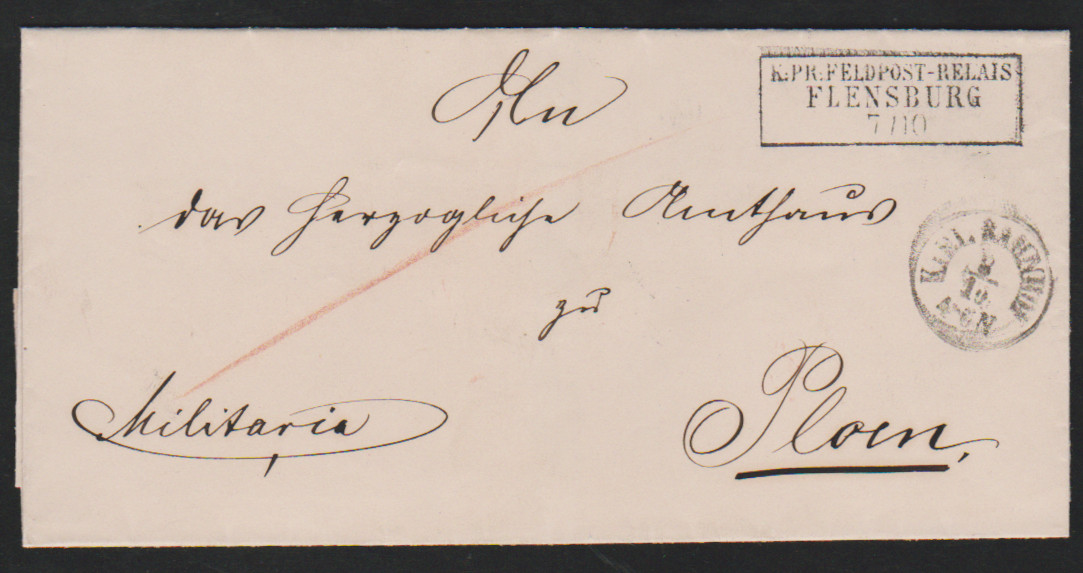 K:PR:FELDPOST-RELAIS
FLENSBURG
7/10
An
das Herzogliche Amthaus
zu
Ploen,
Militaria
KIEL BAHNHOF